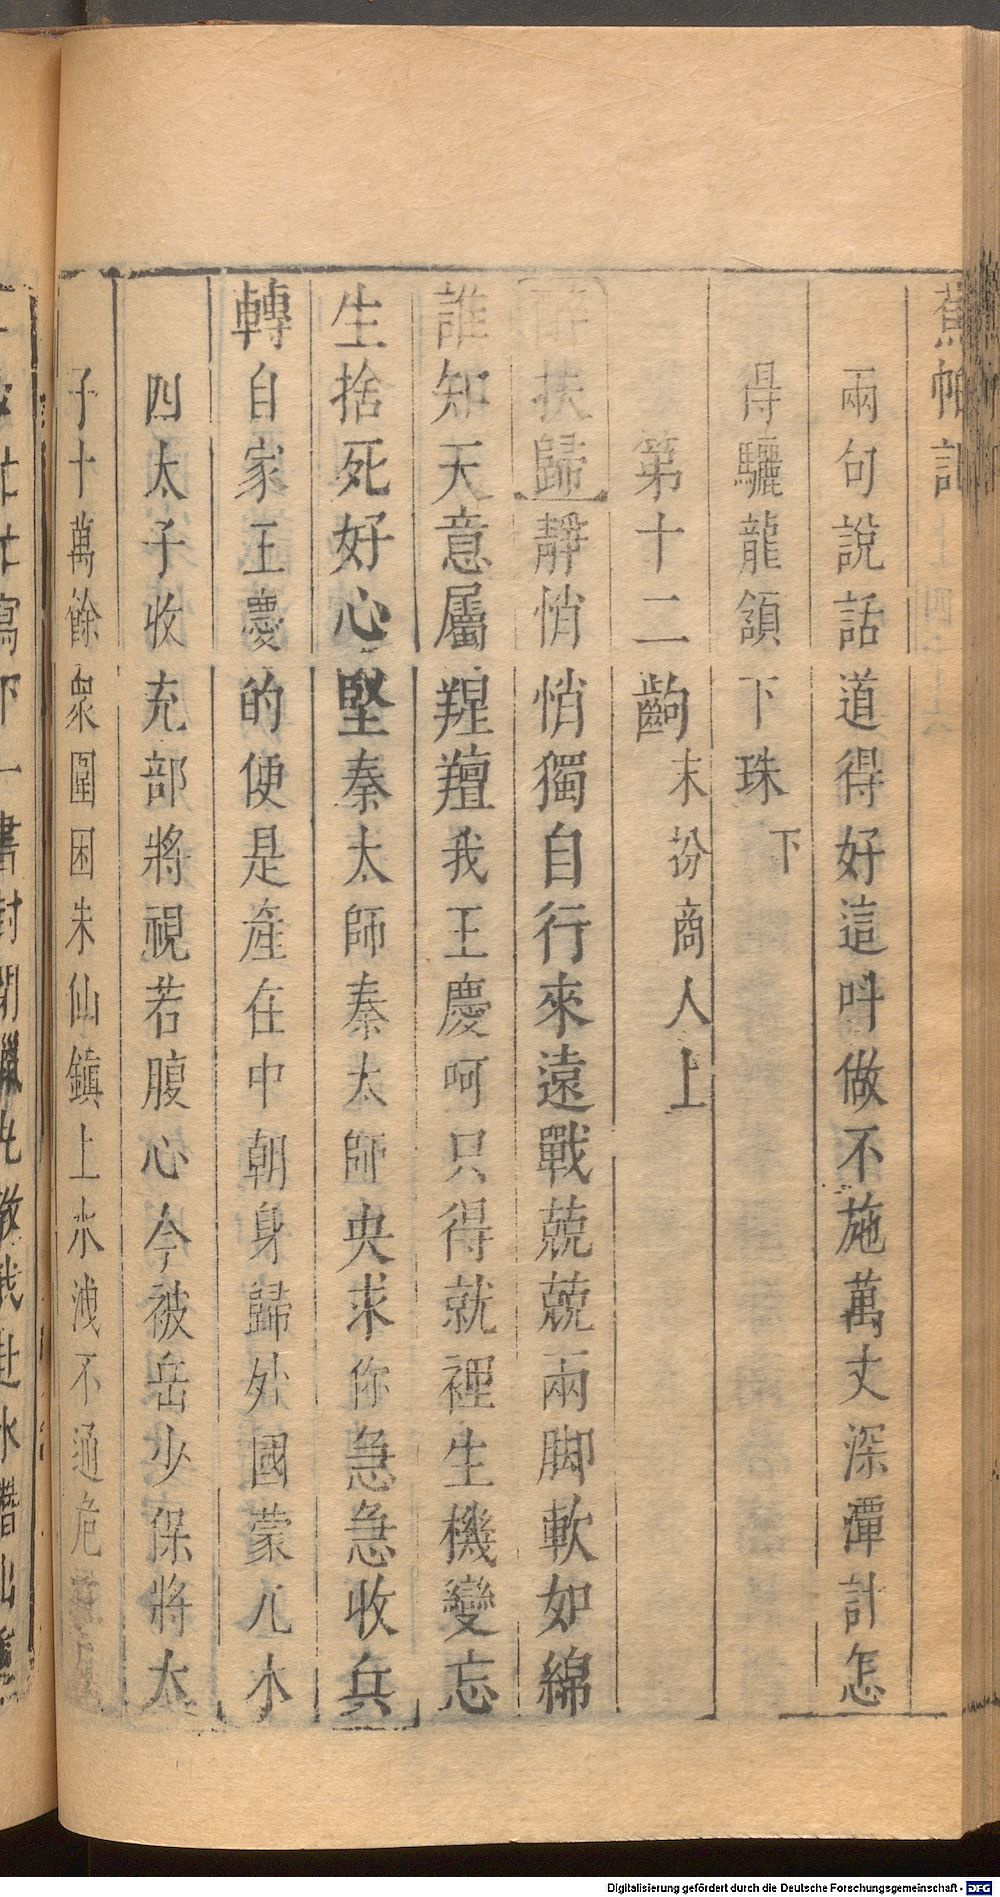 蕉帕記
兩句說話道得好這呌做不施萬丈深潭計怎
得驪龍頷下珠下
第十二齣末扮商人上
醉扶歸靜悄悄獨自行來遠戰兢兢兩脚軟如綿
誰知天意屬羶羶我王慶呵只得就裡生機變忘
生捨死好心堅秦太師秦太師央求你急急收兵
轉自家王慶的便是產在中朝身歸外國蒙兀朮
四太子收充部將視若腹心今被岳少保將太
子十萬餘衆圍困朱仙鎮上水洩不通危
書封
Digitalisierung gefördert durch die Deutsche Forschungsgemeinschaft - DFG